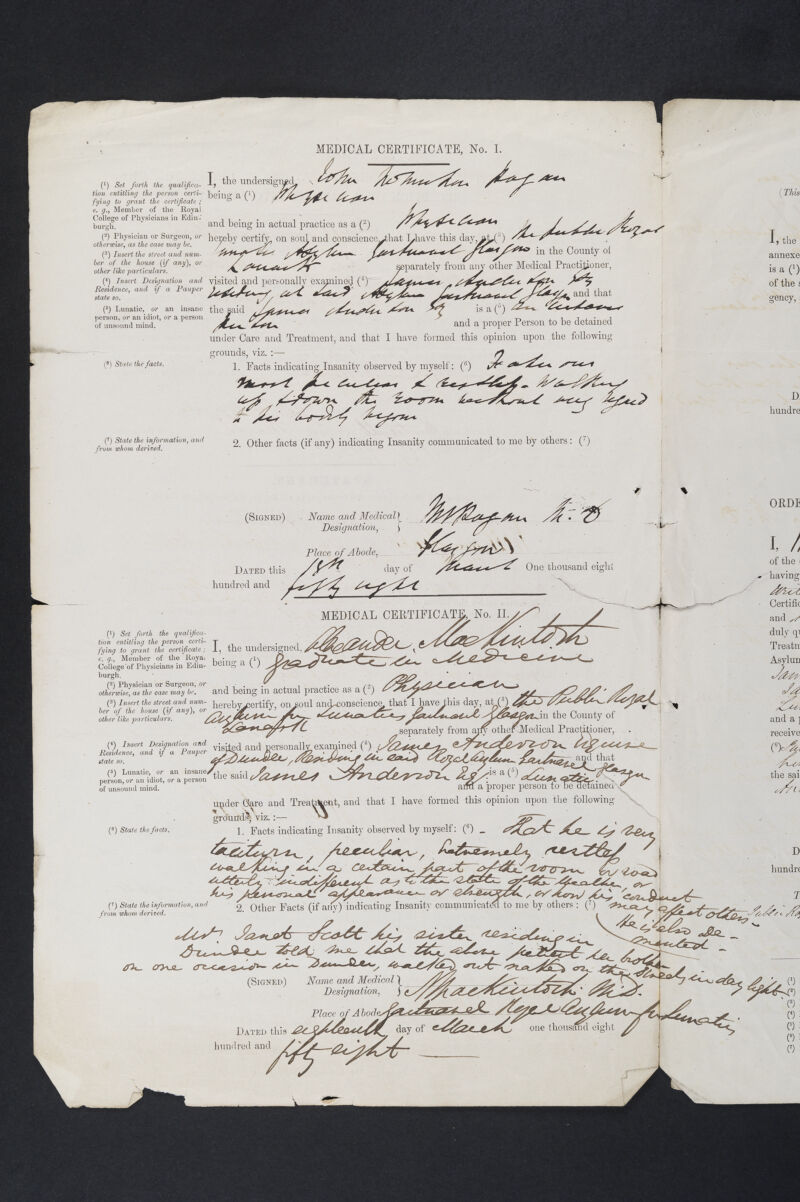 MEDICAL CERTIFICATE, No. I.
(¹) Set forth the qualifica-
tion entitling the person certi-
fying to grant the certificate;
e. g., Member of the Royal
College of Physicians in Edin-
burgh.
(²) Physician or Surgeon, or
otherwise, as the case may be.
(³) Insert the street and num-
ber of the house (if any), or
other like particulars.
(⁴) Insert Designation and
Residence, and if a Pauper
state so.
(⁵) Lunatic, or an insane
person, or an idiot, or a person
of unsound mind.
(⁶) State the facts.
(⁷) State the information, and
from whom derived.
I, the undersigned, John
being a (¹) Physician
and being in actual practice as a (²) Physician
hereby certify, on soul and conscience, that I have this day, at (³) the public Royal
Asylum Gartnavel Glasgow in the County of
Lanark separately from any other Medical Practitioner,
visited and personally examined (⁴) James Anderson Esq
residing at said Asylum Gartnavel Glasgow and that
the said James Anderson Esq is a (⁵)
person and a proper Person to be detained
under Care and Treatment, and that I have formed this opinion upon the following
grounds, viz. :—
1. Facts indicating Insanity observed by myself: (⁶)
most peculiar & restless. Walking
up & down the room without any regard
to his bodily
2. Other facts (if any) indicating Insanity communicated to me by others: (⁷)
(SIGNED) Name and Medical
Designation, M. D
Place of Abode, Glasgow
DATED this day of March One thousand eight
hundred and fifty eight
MEDICAL CERTIFICATE, No. II.
(¹) Set forth the qualifica-
tion entitling the person certi-
fying to grant the certificate;
e. g., Member of the Royal
College of Physicians in Edin-
burgh.
(²) Physician or Surgeon, or
otherwise, as the case may be.
(³) Insert the street and num-
ber of the house (if any), or
other like particulars.
(⁴) Insert Designation and
Residence, and if a Pauper
state so.
(⁵) Lunatic, or an insane
person, or an idiot, or a person
of unsound mind.
(⁶) State the facts.
(⁷) State the information, and
from whom derived.
I, the undersigned, Alexander Mackintosh
being a (¹) graduate in Medicine
and being in actual practice as a (²) Physician
hereby certify, on soul and conscience, that I have this day, at (³) the Public Royal
Asylum for Lunatics Gartnavel Glasgow in the County of
Lanark separately from any other Medical Practitioner,
visited and personally examined (⁴) James Anderson Esquire
of Dundee, Residing in said Royal Asylum Gartnavel Glasgow and that
the said James Anderson Esq is a (⁵) Lunatic
and a proper person to be detained
under Care and Treatment, and that I have formed this opinion upon the following
grounds, viz. :—
1. Facts indicating Insanity observed by myself: (⁶) - That he is very
taciturn, peculiar, extremely restless
walking in a certain part of the room or road
utterly indifferent as to the state of the weather, or
his personal appearance or strength, or how his conduct
may affect others -
He is also de-
mented -
2. Other Facts (if any) indicating Insanity communicated to me by others: (⁷)
Mrs Janet Scott his sister residing in
Dundee told me that the above patient her brother
on one occasion in Dundee, walked out naked on the streets in day light -
(SIGNED) Name and Medical
Designation, A Mackintosh M.D.
Place of Abode Gartnavel Royal Asylum for Lunatics
DATED this eighteenth day of March one thousand eight
hundred and fifty eight
(This
I, the
annexe
is a (¹)
of the s
gency,
D
hundre
ORDE
I,
of the
having
Certific
and
duly qu
Treatm
Asylum
and a p
receive
the sai
D
hundre
T
(¹)
(²)
(³)
(⁴)
(⁵)
(⁶)
(⁷)